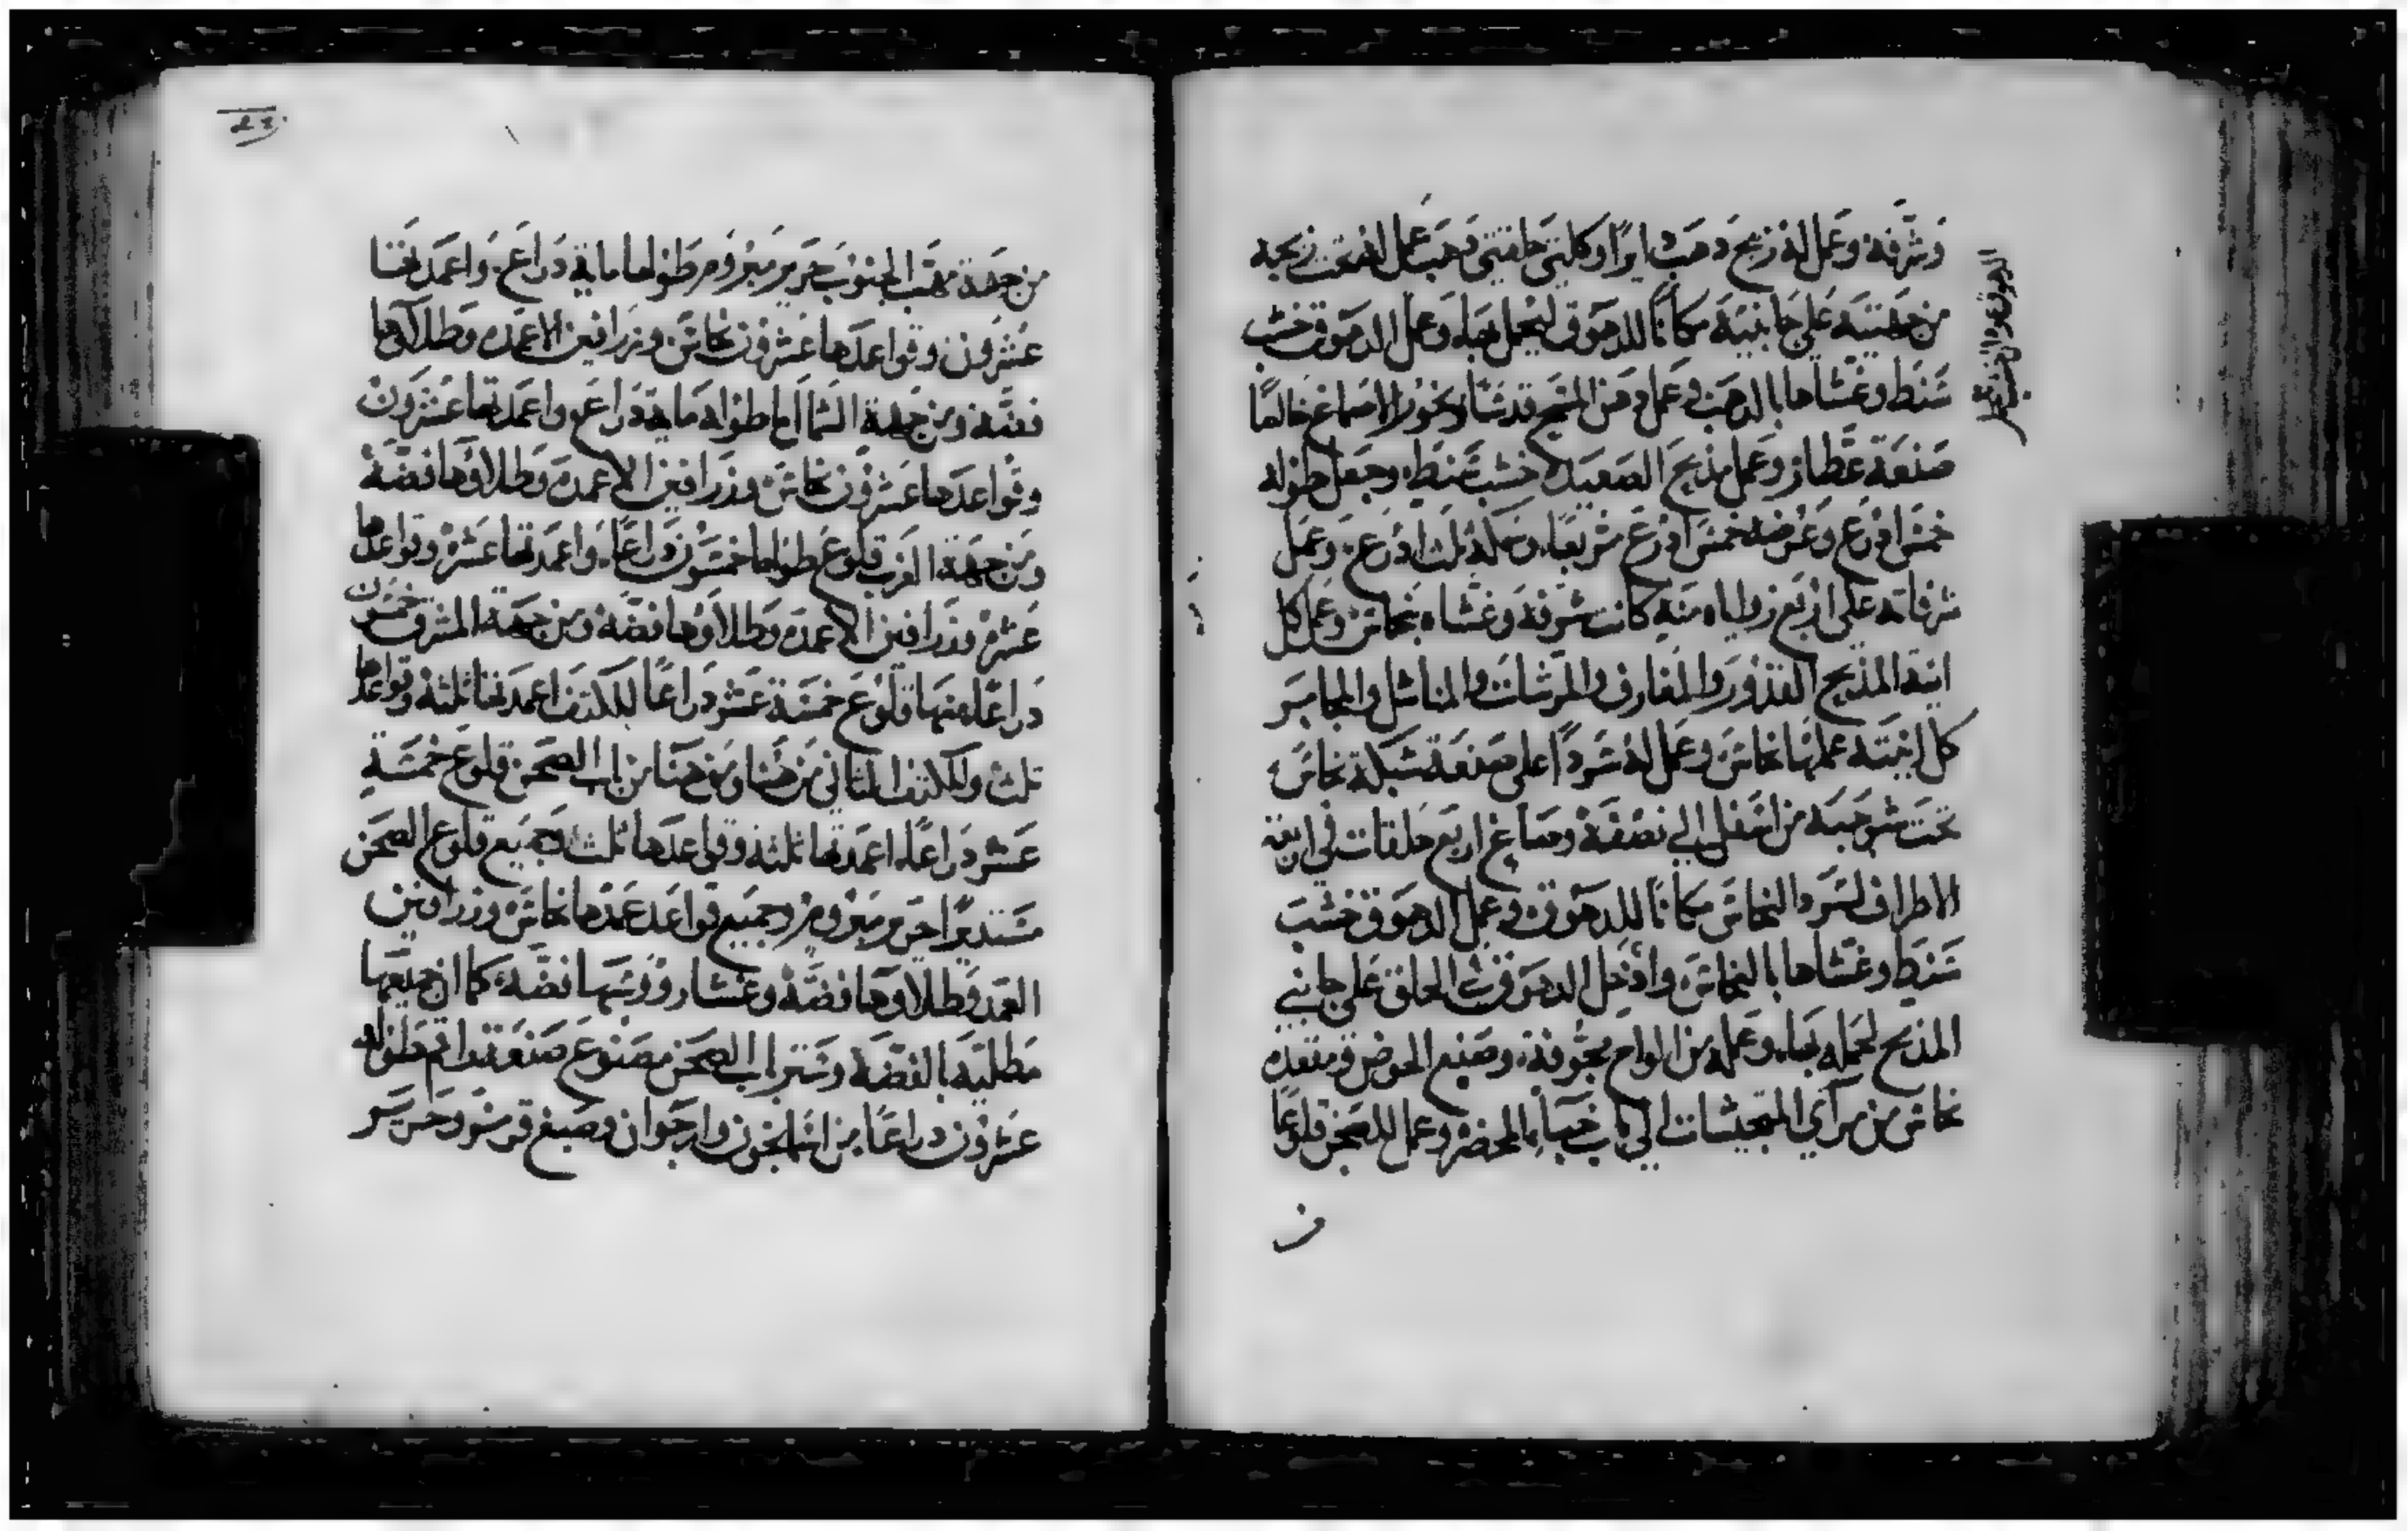 وشرفه وعمل له زيج دهب دايرًا وكلتي حلقتي دهب عمل له تحت زيجه
من جهتيه علي جانبيه مكانًا للدهوق ليحمل بها وعمل الدهوق خشب
شنط وغشاها بالدهب وعمل دهن المسح قدسًا وبخور الاصماغ خالصًا
صنعة عطار وعمل مذبح الصعيده خشب شنط وجعل طوله
خمس اذرع وعرضه خمس اذرع مربعًا وسمكه ثلث اذرع وعمل
شرفاته علي اربع زواياه منه كانت شرفه وغشاه بنحاس وعمل كل
انية المذبح القدور والمغارف والمرشات والمناشل والمجامر
كل انيته عملها نحاس وعمل له سردًا علي صنعة شبكة نحاس
تحت شرجبه من اسفل الي نصفه وصاغ اربع حلقات في اربعة
الاطراف لسرد النحاس مكانًا للدهوق وعمل الدهوق خشب
شنط وغشاها بالنحاس وادخل الدهوق في الحلق علي جانبي
المذبح لحمله بها وعمله من الواح مجوفة وصنع الحوض ومقعده
نحاس من مرآي المتجيشات الي باب خبآ المحضر وعمل للصحن قلوعًا
من جهة مهب الجنوب حرير مبروم طولها ماية دراع واعمدتها
عشرون وقواعدها عشرون نحاس وزرافين الاعمده وطلاؤها
فضه ومن جهة الشمال طوله ماية دراع واعمدتها عشرون
وقواعدها عشرون نحاس وزرافين الاعمده وطلاؤها فضة
ومن جهة الغرب قلوع طولها خمسون دراعًا واعمدتها عشره وقواعدها
عشره وزرافين الاعمده وطلاؤها فضه ومن جهة المشرق خمسون
دراعًا منها قلوع خمسة عشر دراعًا للكتف اعمدتها ثلثه وقواعدها
ثلث وللكتف الثاني من هنا ومن هنا من باب الصحن قلوع خمسة
عشر دراعًا اعمدتها ثلثه وقواعدها ثلث جميع قلوع الصحن
مستديرًا حرير مبروم وجميع قواعد عمدها نحاس وزرافين
العمد وطلاوها فضه وغشا رؤسها فضه كما ان جميعها
مطليه بالفضه وستر باب الصحن مصنوع صنعة رقم طوله
عشرون دراعًا من اسمانجون وارجوان وصبغ قرمز وحرير